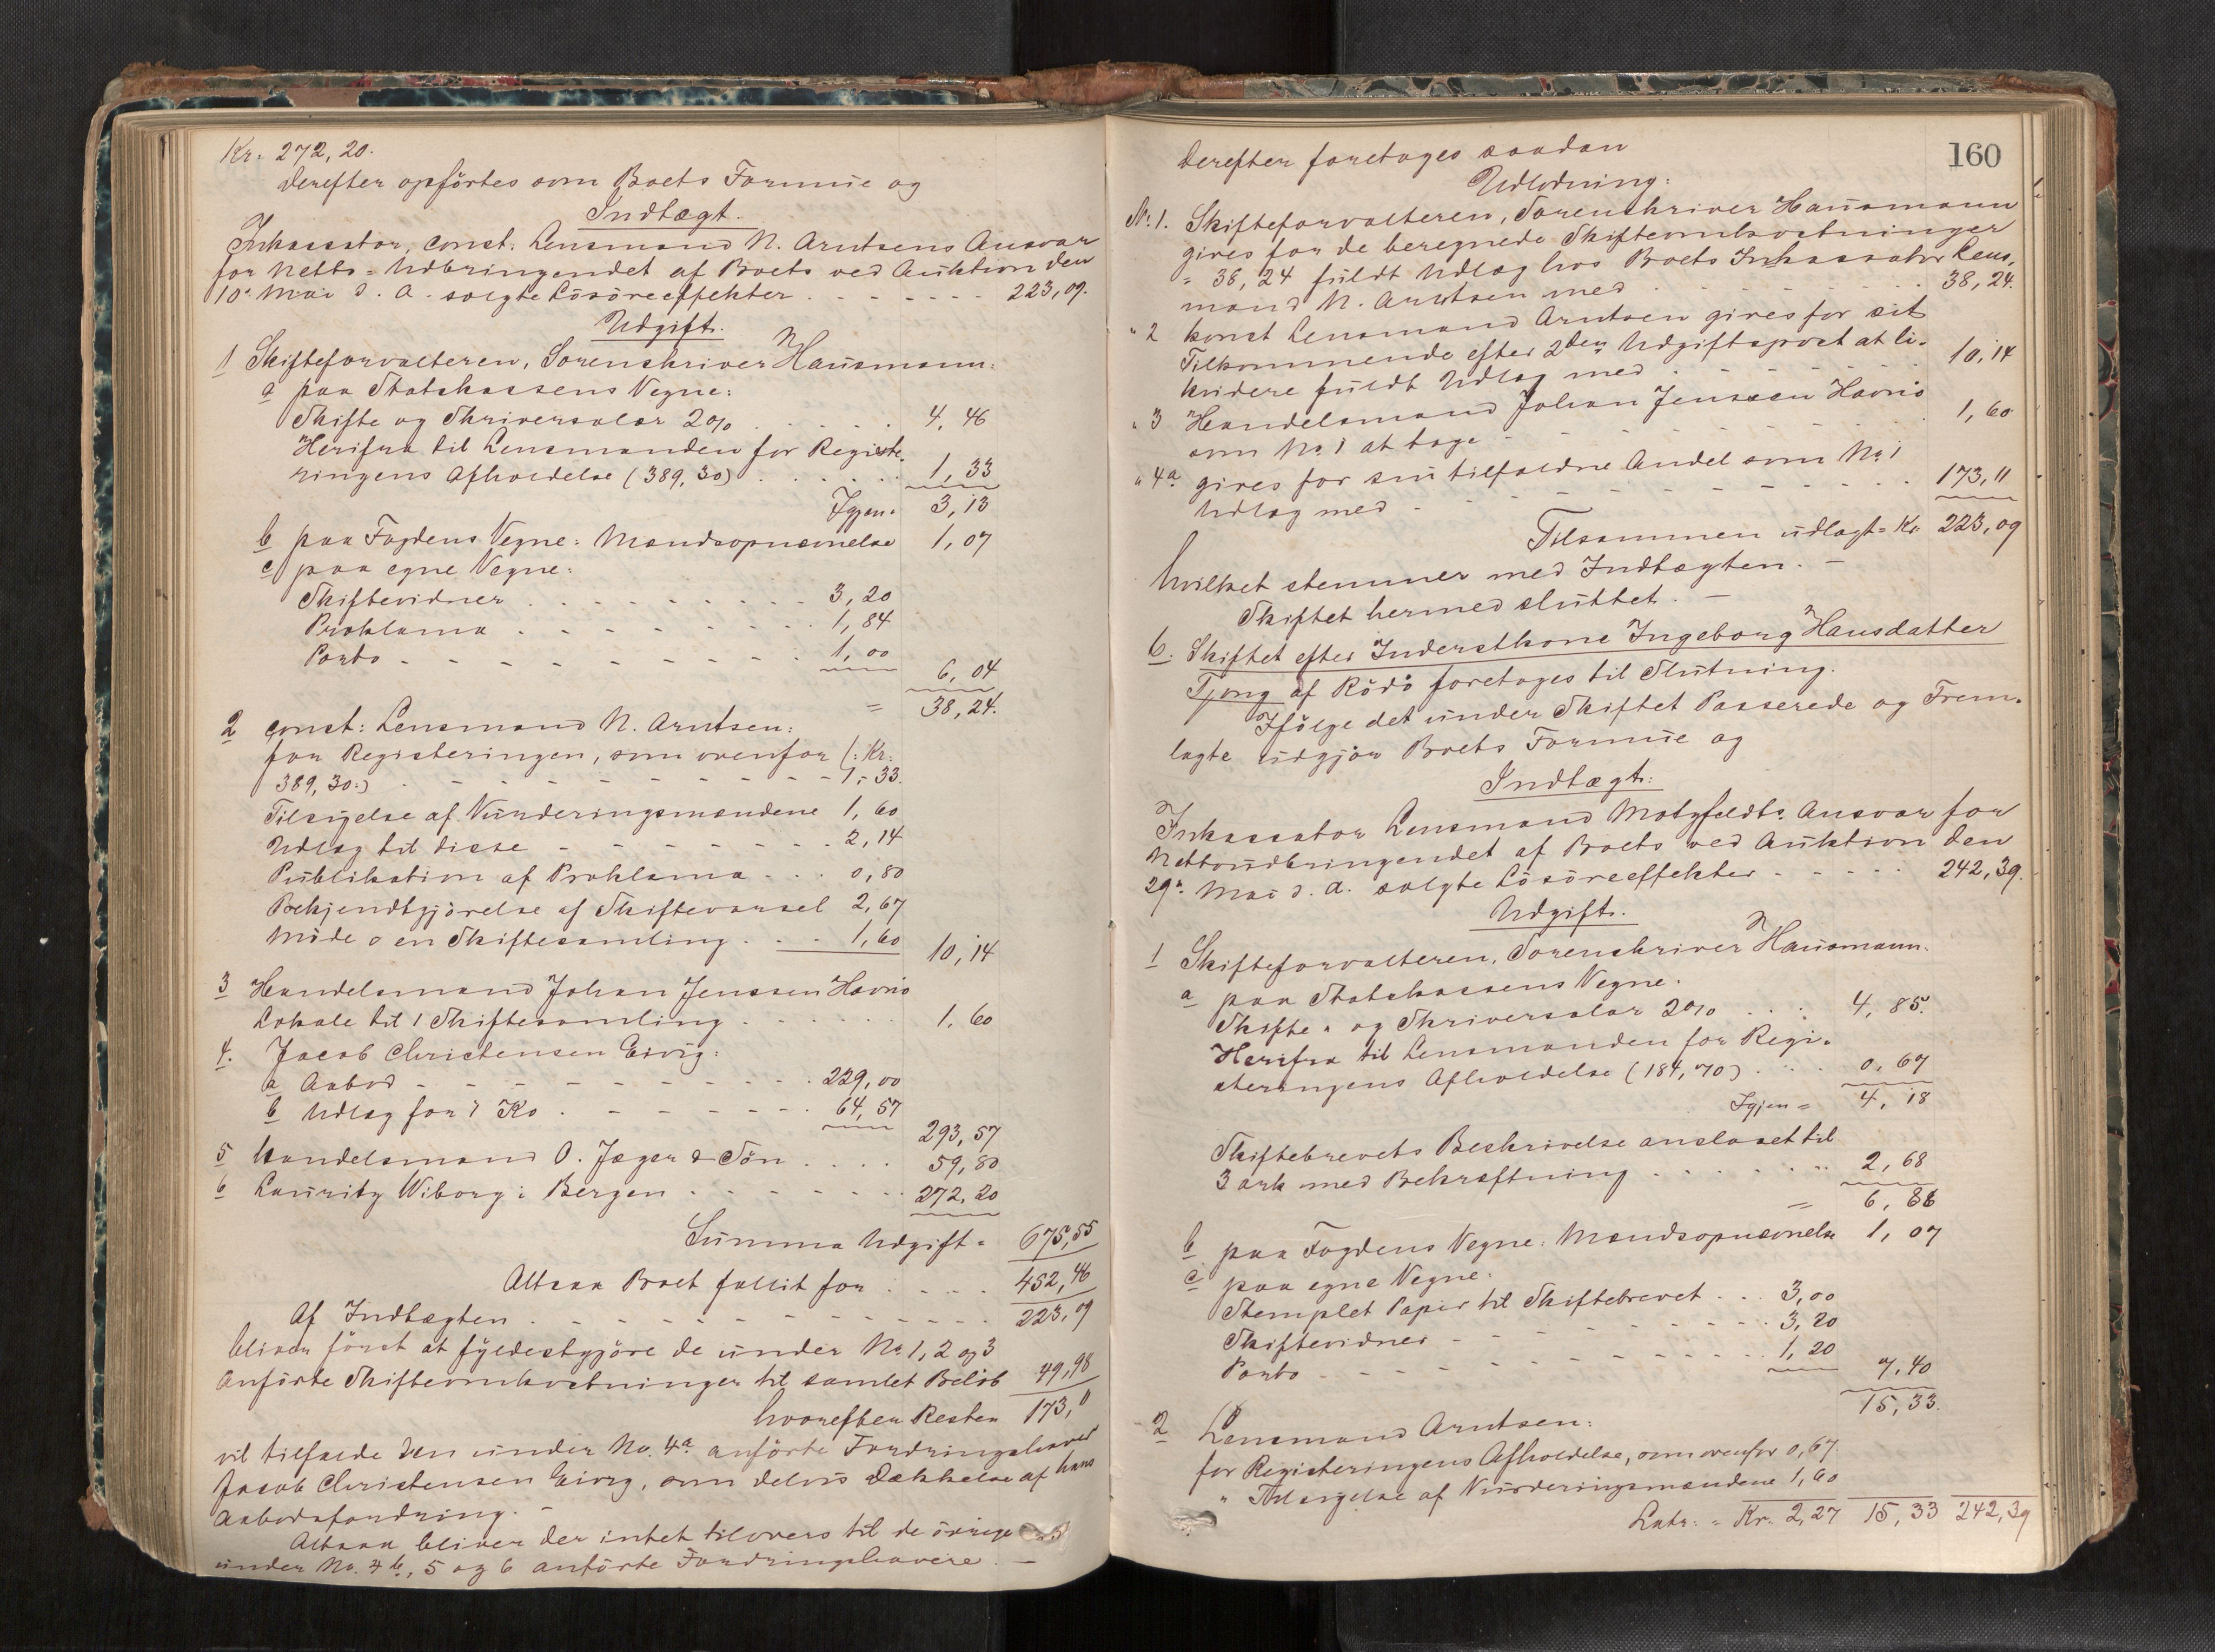 Kr. 272,20.
Derefter opförtes som Boets Formue og
Indtægt.
Inkassator, const. Lensmand N. Arntsens Ansvar
for Netto-Udbringendet af Boets ved Auktion den
10. Mai d. A. solgte Lösöreeffekter . . . . . . . 223,09.
Udgift.
1 Skifteforvalteren, Sorenskriver Hausmann:
a paa Statskassens Vegne:
Skifte og Skriversalær 2% . . . . . . 4,46
Herifra til Lensmanden for Registe-
ringens Afholdelse (389,30) . . . . . . 1,33
Igjen = 3,13
b paa Fogdens Vegne: Mandsopnævnelse 1,07
c paa egne Vegne:
Skiftevidner . . . . . . . . . 3,20
Proklama . . . . . . . . . 1,84
Porto . . . . . . . . . 1,00
6,04
= 38,24.
2 const: Lensmand N. Arntsen:
for Registeringen, som ovenfor (: Kr.
389,30:) . . . . . . . . . 1,33.
Tilsigelse af Vurderingsmændene 1,60
Udlæg til disse . . . . . . . 2,14
Publikation af Proklama . . . 0,80
Bekjendtgjörelse af Skiftevarsel 2,67
Möde o en Skiftesamling . . . 1,60 10,14
3 Handelsmand Johan Jenssen Havnö
Lokale til 1 Skiftesamling . . . . . . 1,60
4. Jacob Christensen Eivig:
a Aabod . . . . . . . . . 229,00
b Udlæg for 1 Ko . . . . . . . 64,57
293,57
5 Handelsmand O. Jæger & Sön . . . . 59,80
6 Lauritz Wiborg i Bergen . . . . . . . 272,20
Summa Udgift = 675,55
Altsaa Boet fallit for . . . . 452,46
Af Indtægten . . . . . . . . . . . . . 223,09
bliver först at fyldestgjöre de under No. 1, 2 og 3
anförte Skifteomkostninger til samlet Belöb 49,98
hvorefter Resten 173,11
vil tilfalde den under No. 4a anförte Fordringshaver
Jacob Christensen Eivig, som delvis Dækkelse af hans
Aabodsfordring. —
Altsaa bliver der intet tilovers til de övrige
under No. 4b, 5 og 6 anförte Fordringshavere. —
160
Derefter foretages saadan
Udlodning:
No. 1. Skifteforvalteren, Sorenskriver Hausmann
gives for de beregnede Skifteomkostninger
= 38,24 fuldt Udlæg hos Boets Inkassator Lens-
mand N. Arntsen med . . . . . . . . . 38,24.
" 2 konst Lensmand Arntsen gives for sit
Tilkommende efter 2den Udgiftspost at li-
kvidere fuldt Udlæg med . . . . . . . 10,14
" 3 Handelsmand Johan Jenssen Havnö
som No 1 at tage . . . . . . . . . 1,60
" 4a gives for sin tilfaldne Andel som No 1
Udlæg med . . . . . . . . . . . 173,11
Tilsammen udlagt = Kr 223,09
hvilket stemmer med Indtægten. —
Skiftet hermed sluttet. —
6. Skiftet efter Inderstkone Ingeborg Hansdatter
Tjong af Rödö foretages til Slutning.
Ifölge det under Skiftet Passerede og Frem-
lagte udgjör Boets Formue og
Indtægt:
Inkassator Lensmand Motzfeldts Ansvar for
Nettoudbringendet af Boets ved Auktion den
29. Mai d. A. solgte Lösöreeffekter . . . . . 242,39.
Udgift.
1 Skifteforvalteren, Sorenskriver Hausmann.
a paa Statskassens Vegne.
Skifte- og Skriversalær 2% . . . . 4,85.
Herifra til Lensmanden for Regi-
steringens Afholdelse (184,70) . . . . 0,67
Igjen = 4,18
Skiftebrevets Beskrivelse anslaaet til
3 ark med Bekræftning . . . . . . . 2,68
= 6,86
b paa Fogdens Vegne: Mandsopnævnelse 1,07
c paa egne Vegne:
Stemplet Papir til Skiftebrevet . . . 3,00
Skiftevidner . . . . . . . . . 3,20
Porto . . . . . . . . . . . 1,20
7,40
15,33.
2 Lensmand Arntsen:
for Registeringens Afholdelse, som ovenfor 0,67.
" Tilsigelse af Vurderingsmændene 1,60
Latr. = Kr. 2,27 15,33 242,39